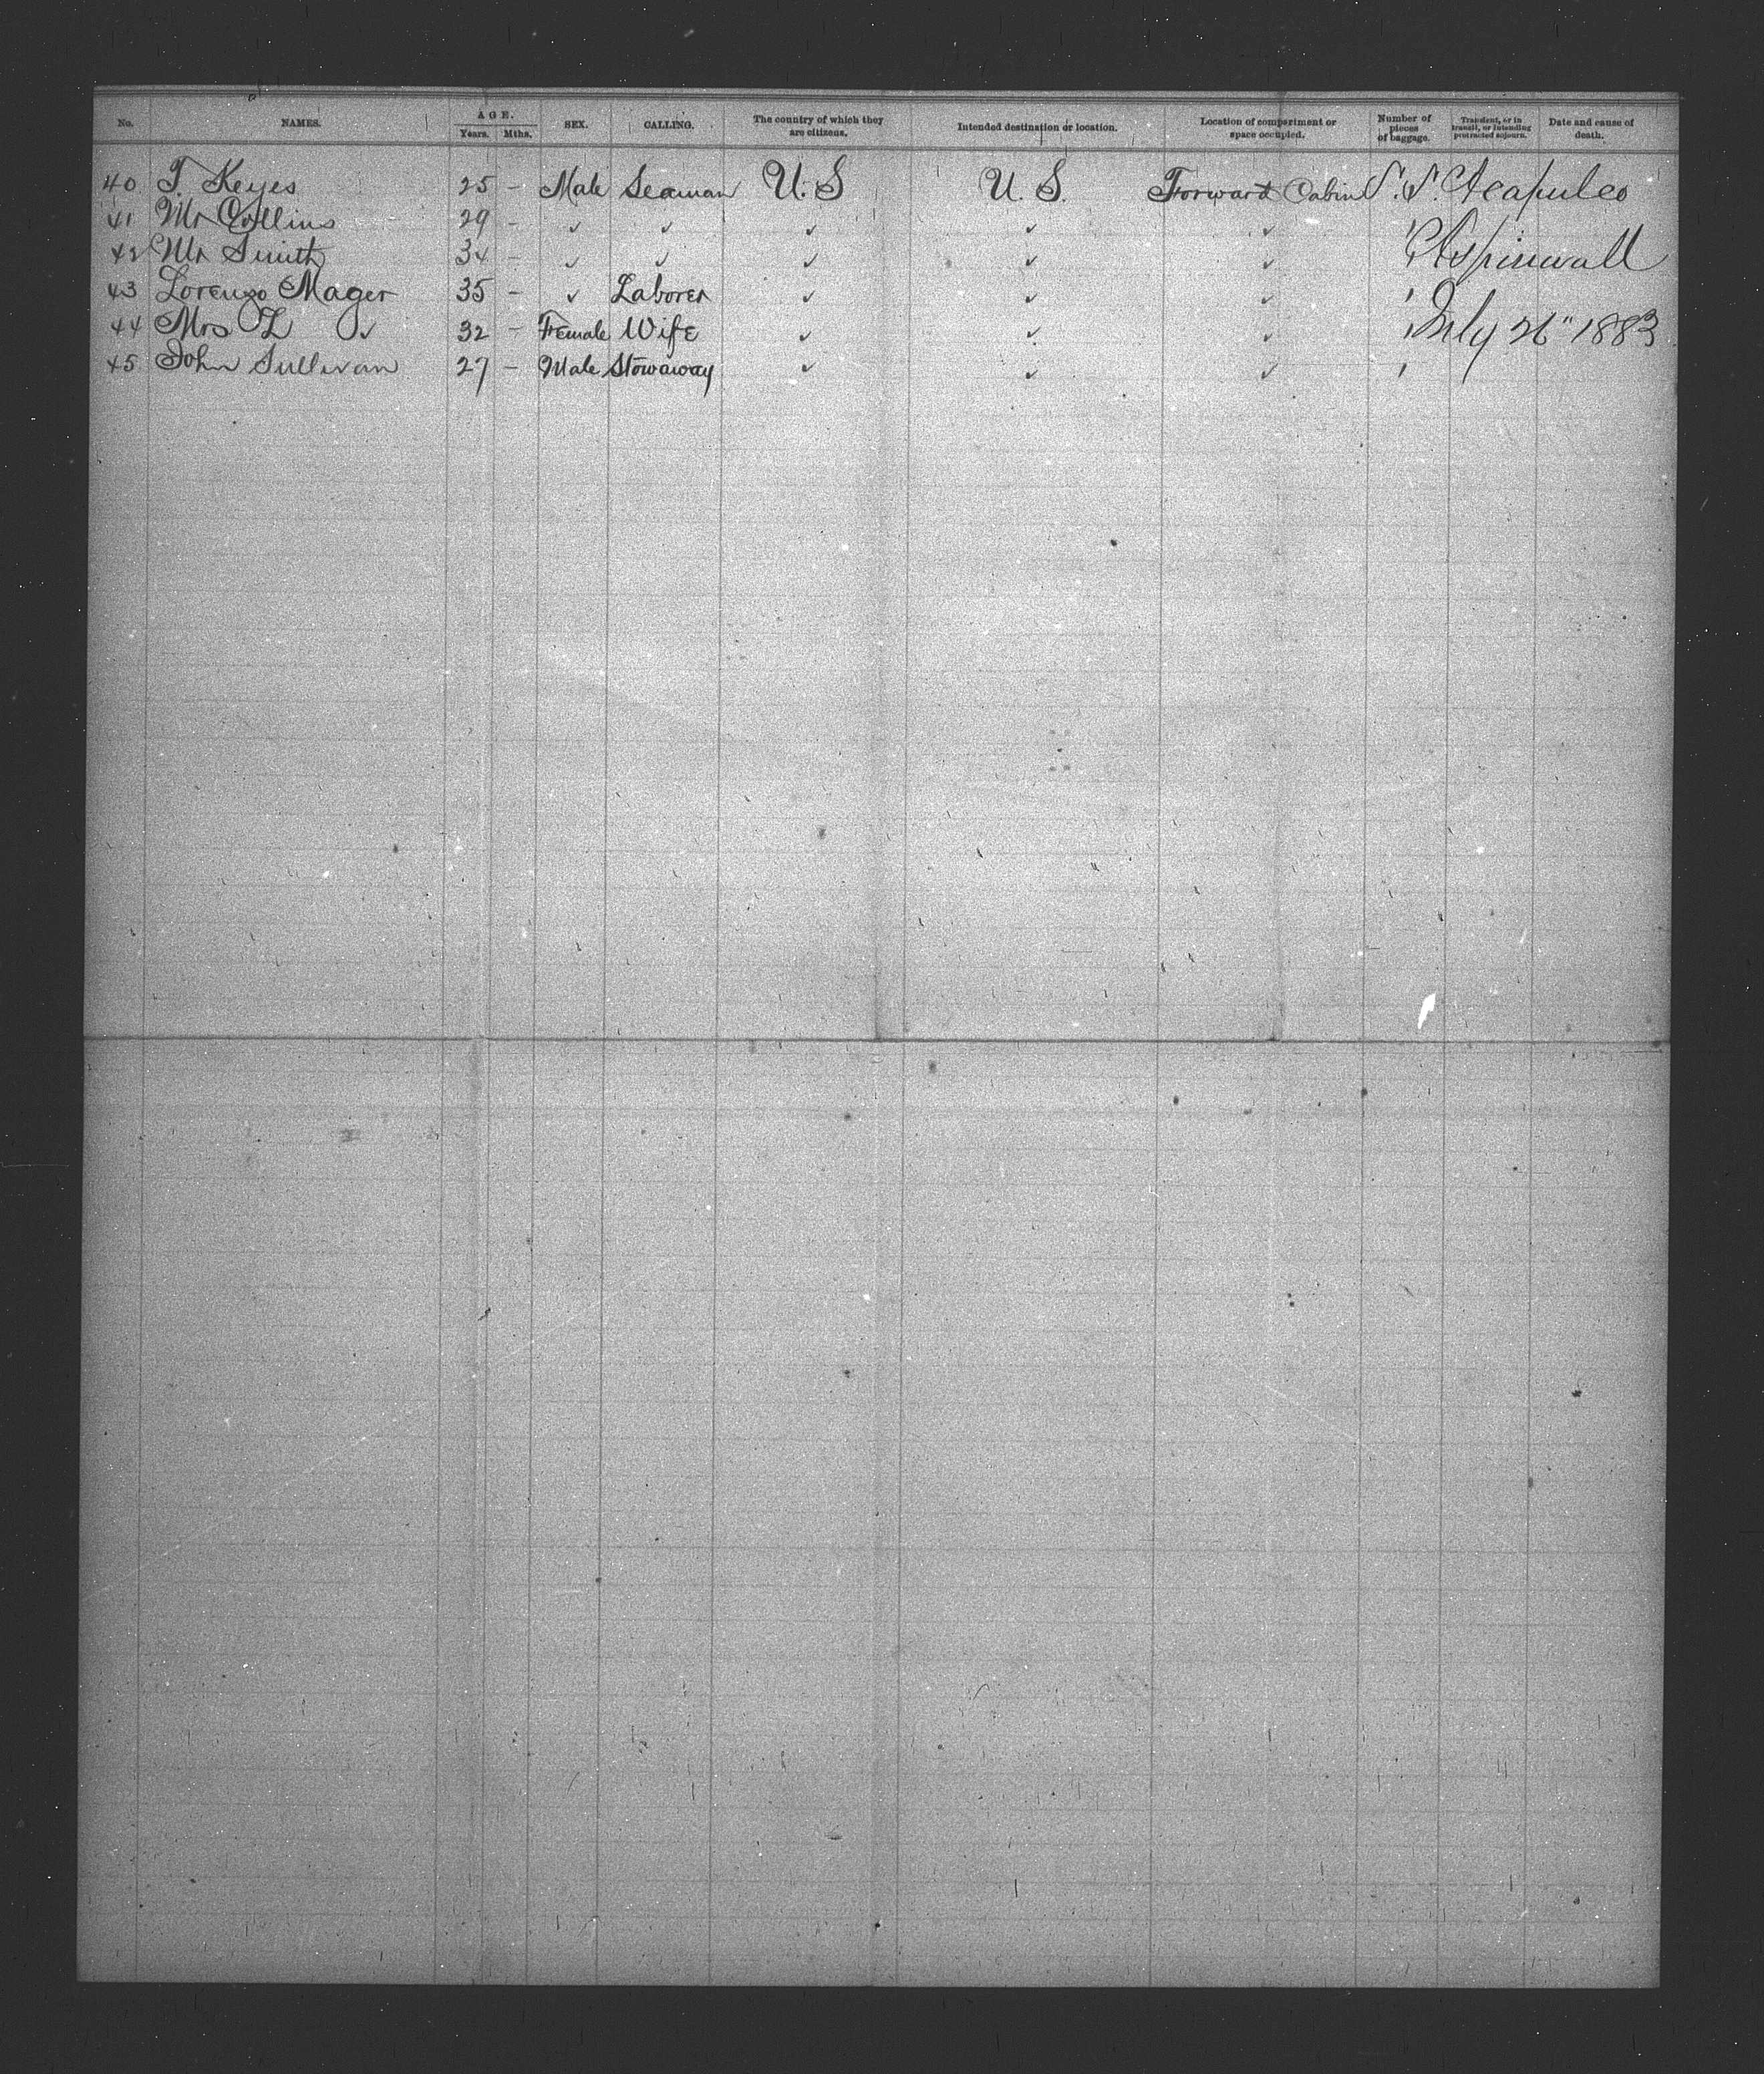 No. NAMES. AGE. Years. Mths. SEX. CALLING. The country of which they are citizens. Intended destination or location. Location of compartment or space occupied. Number of pieces of baggage. Transient, or in transit, or intending protracted sojourn. Date and cause of death.
40 T. Keyes 25 - Male Seaman U.S U.S. Forward Cabin S.S. Acapulco
41 Mr Collins 29 - ✓ ✓ ✓ ✓ ✓ '
42 Mr Smith 34 - ✓ ✓ ✓ ✓ ✓ ' Aspinwall
43 Lorenzo Mager 35 - ✓ Laborer ✓ ✓ ✓ '
44 Mrs L ✓ 32 - Female Wife ✓ ✓ ✓ ' July 26" 1883
45 John Sullivan 27 - Male Stowaway ✓ ✓ ✓ '